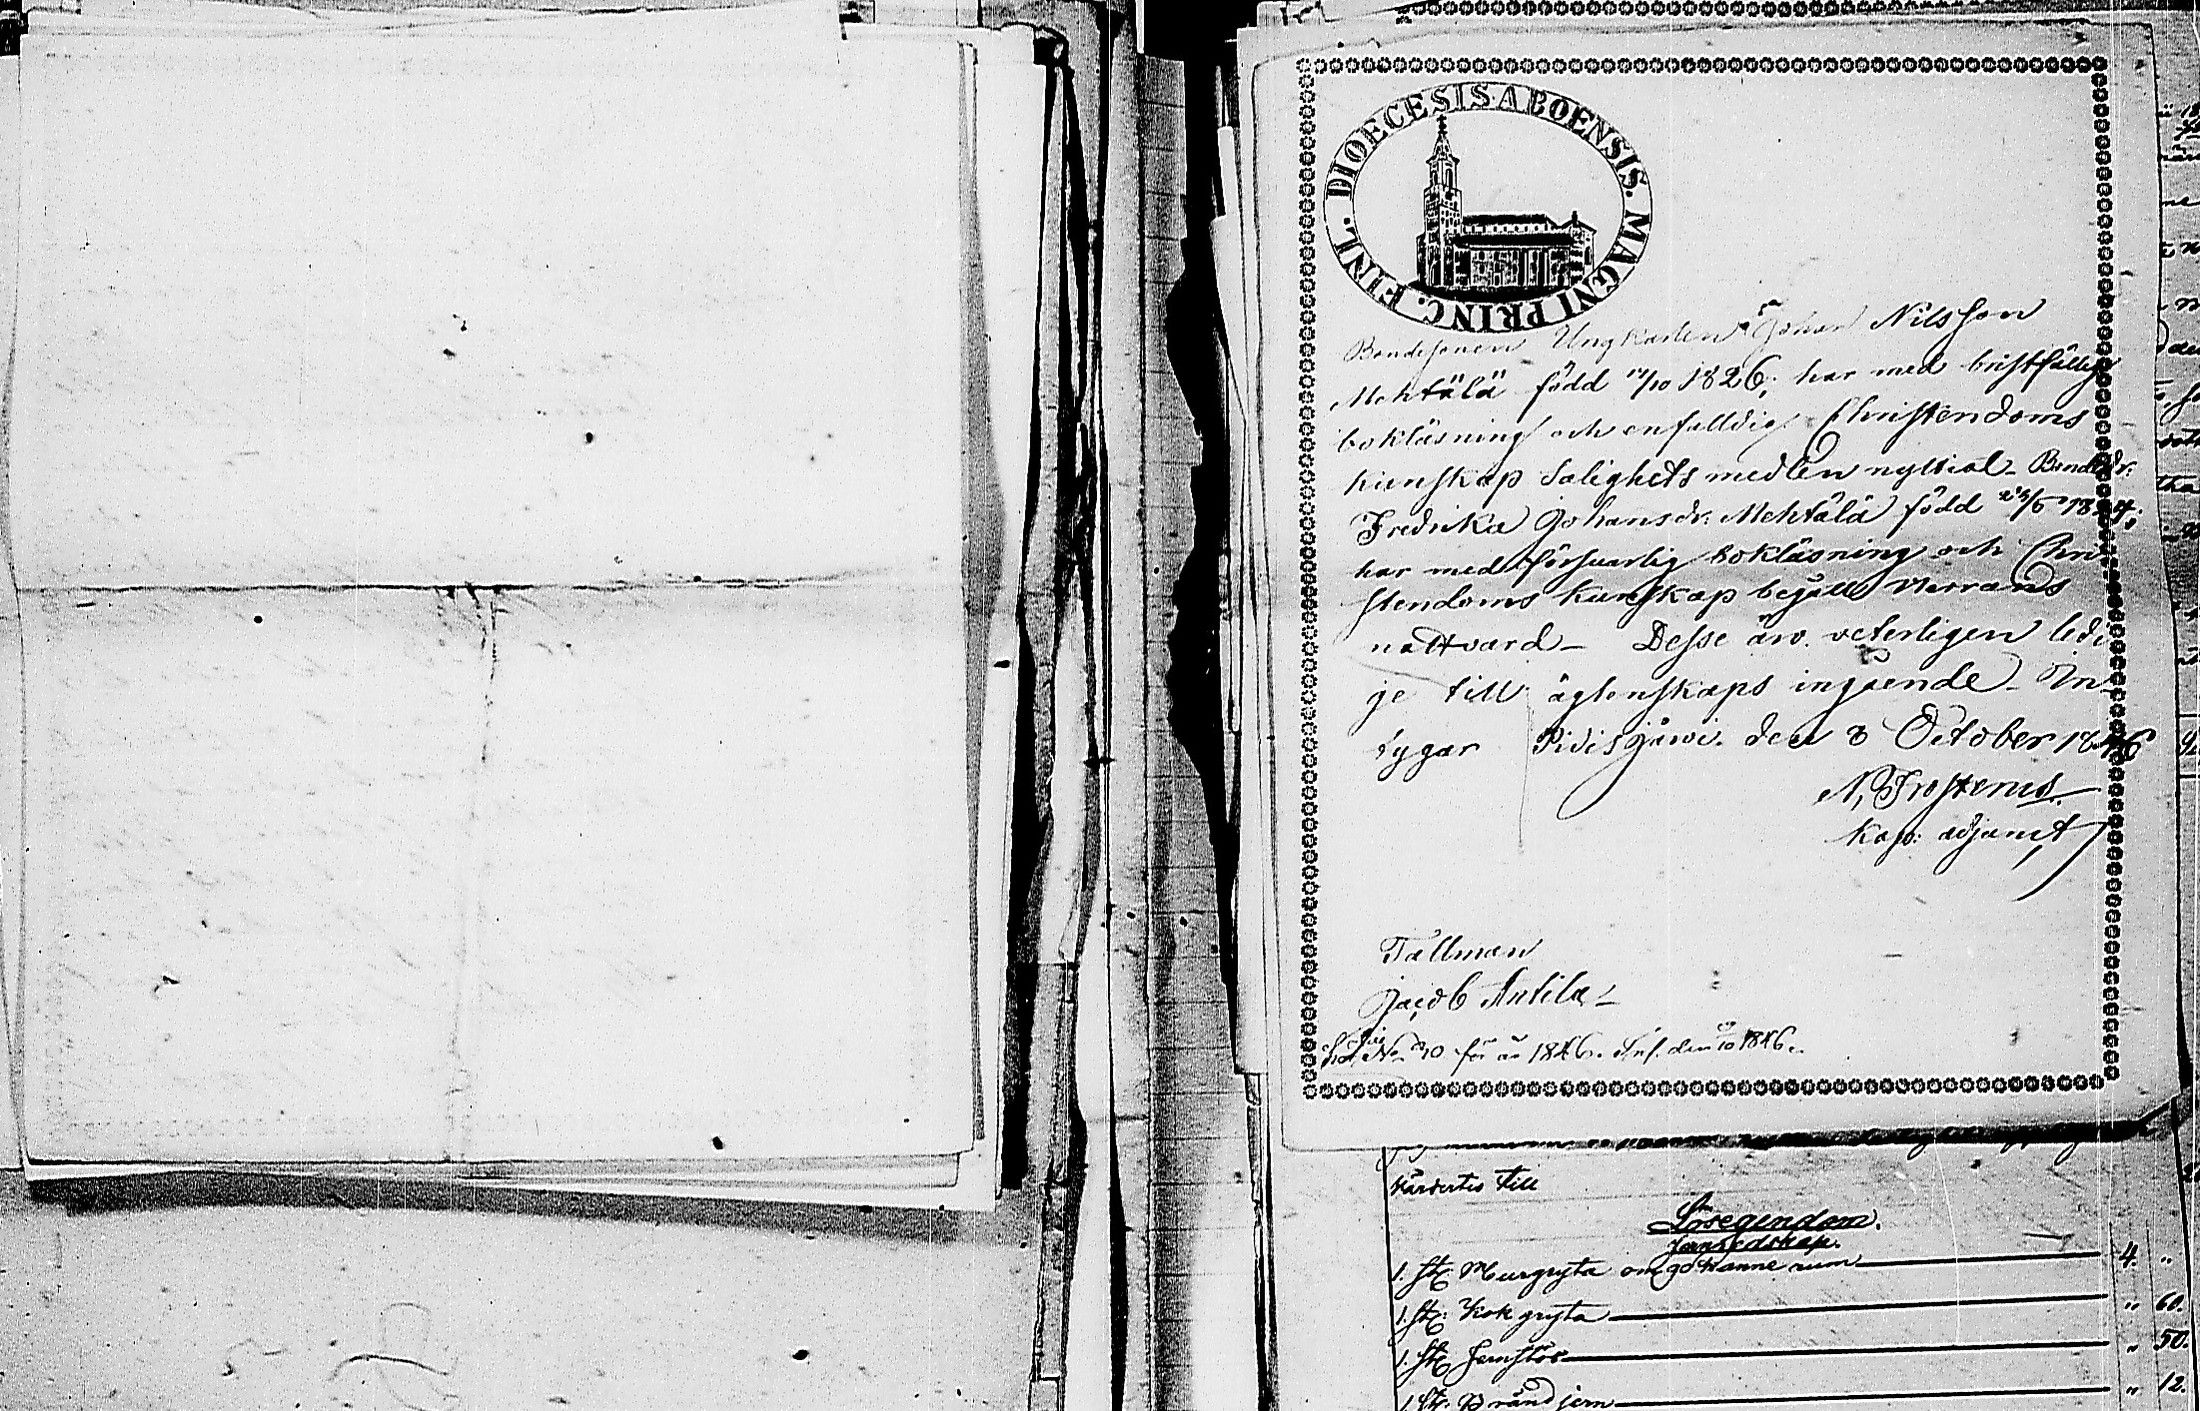 DIOECESIS ABOENSIS. MAGNI PRINC. FINL.
Bondesonen Ungkarlen Johan Nilsson
Mehtälä född 14/10 1826; har med bristfällig
bokläsning och enfalldig Christendoms
kunskap Salighets medlen nyttiat_ Bondedr.
Fredrika Johansdr. Mehtälä född /5 1824;
har med försvarlig bokläsning och Chri
stendoms kunskap begått Herrans
nattvard_ Desse äro veterligen ledi
ge till ägtenskaps ingående_ In
tygar Pidisjärwi. den 8 October 1846
N, Frosterus.
Kap: adjunct
Tallman
Jacob Antila_
No 30 för år 1846. den 1846.
Värdertes till
Lösegendom.
Jernredskap.
1. St. Murgryta om 90 kanne rum 4. "
1. St. Kokgryta " 60.
1. St. Jernstör " 50.
1. St. Brändjern " 12.